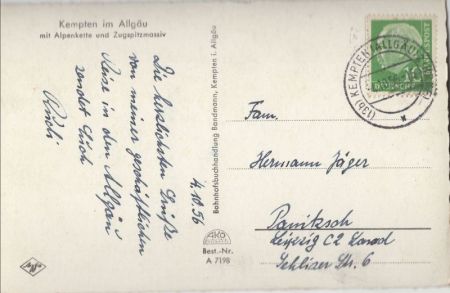 Kempten im Allgäu
mit Alpenkette und Zugspitzmassiv
Die herzlichsten Grüße
von meiner geschäftlichen
Reise in den Allgäu
sendet Euch
Rudi
4.10.56
Bahnhofsbuchhandlung Bandmann, Kempten i. Allgäu
Best.-Nr.
A 7198
(13b) KEMPTEN (ALLGÄU)
DEUTSCHE
BUNDESPOST
10
Fam.
Hermann Jäger
Panitzsch
Leipzig C2
Str. 6
Agfa